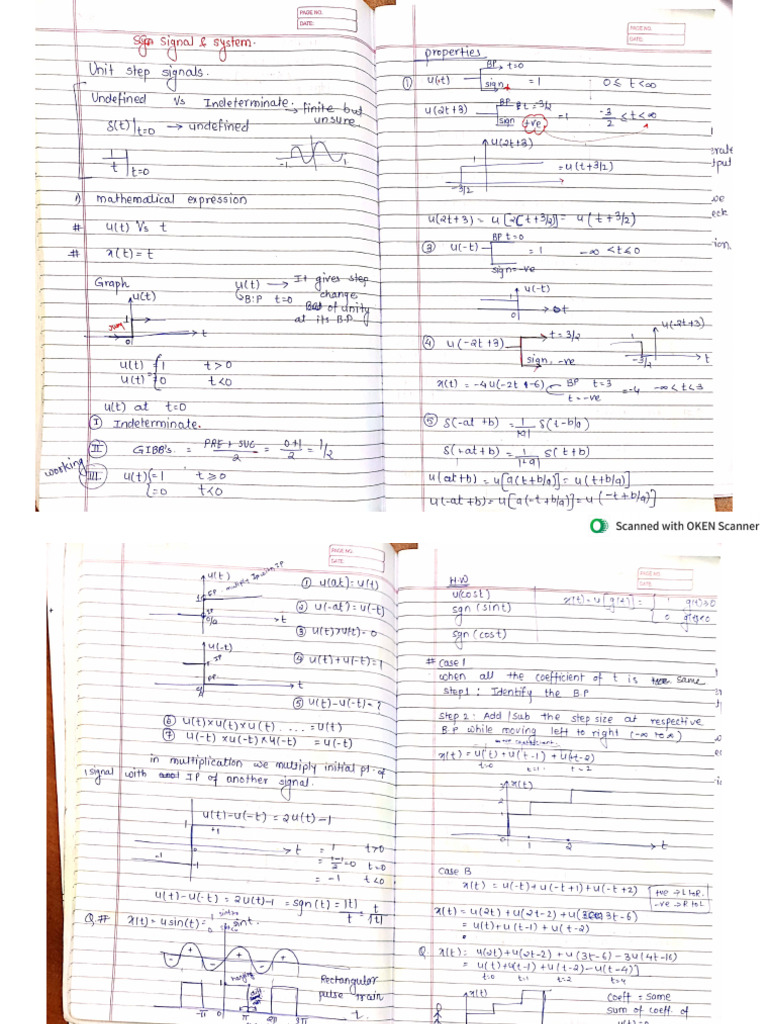 PAGE NO.
DATE:
signal & system.
Unit step signals.
Undefined Vs Indeterminate. → finite but
unsure.
δ(t)|t=0 → undefined
1/t |t=0
-1 1
1) mathematical expression
# u(t) Vs t
# x(t) = t
Graph
u(t) → It gives step
change
of unity
at its B.P
B.P t=0
u(t)
1
0 t
u(t) = 1 t>0
u(t) = 0 t<0
u(t) at t=0
I Indeterminate.
II GIBB's. = PRE + SUC / 2 = 0+1 / 2 = 1/2
working
III. u(t) = 1 t≥0
= 0 t<0
PAGE NO.
DATE:
properties
① u(t) BP t=0
sign + = 1 0≤t<∞
u(2t+3) BP t=-3/2
sign +ve = 1 -3/2 ≤t≤∞
u(2t+3)
= u(t+3/2)
-3/2
u(2t+3) = u[2(t+3/2)] = u(t+3/2)
③ u(-t) BP t=0
= 1 -∞<t≤0
sign=-ve
u(-t)
1
0 t
④ u(-2t+3) → t=3/2
sign -ve
u(-2t+3)
1
-3/2 t
x(t) = -4u(-2t+6) BP t=3
t=-ve
= -4 -∞<t<3
⑤ δ(-at+b) = 1/|a| δ(t-b/a)
δ(+at+b) = 1/|+a| δ(t+b)
u(at+b) = u[a(t+b/a)] = u(t+b/a)]
u(-at+b) = u[a(-t+b/a)] = u(-t+b/a)]
Scanned with OKEN Scanner
PAGE NO.
DATE:
u(t)
t
u(-t)
t
① u(at) = u(t)
② u(-at) = u(-t)
③ u(t)×u(t) = 0
④ u(t)+u(-t) = 1
⑤ u(t)-u(-t) = ?
⑥ u(t)×u(t)×u(t) .... = u(t)
⑦ u(-t)×u(-t)×u(-t) = u(-t)
in multiplication we multiply initial pt. of
1 signal with IP of another signal.
u(t)-u(-t) = 2u(t)-1
1 +1
0 t
-1 -1
= 1 t>0
= 1-1/2 = 0 t=0
= -1 t<0
u(t)-u(-t) = 2u(t)-1 = sgn(t) = |t|/t = t/|t|
Q.# x(t) = u sin(t) =
- + - + -
height
1
-π 0 π 2π 3π
Rectangular
pulse train
t.
PAGE NO.
DATE:
H.W
u(cost)
sgn (sint)
sgn (cost)
x(t) = u[g(t)] = 1 g(t)≥0
0 g(t)<0
# Case 1
when all the coefficient of t is same
Step 1 : Identify the B.P
Step 2 : Add/Sub the step size at respective
B.P while moving left to right (-∞ to ∞)
x(t) = u(t) + u(t-1) + u(t-2)
t=0 t=1 t=2
x(t)
2
1
1 2 t
Case B
x(t) = u(-t)+u(-t+1)+u(-t+2)
+ve → L to R.
-ve → R to L
x(t) = u(2t)+u(2t-2)+u(3t-6)
= u(t)+u(t-1)+u(t-2)
Q. x(t) = u(2t)+u(2t-2)+u(3t-6)-3u(4t-16)
= u(t)+u(t-1)+u(t-2)-u(t-4)]
t=0 t=1 t=2 t=4
x(t)
coeff = same
sum of coeff. of